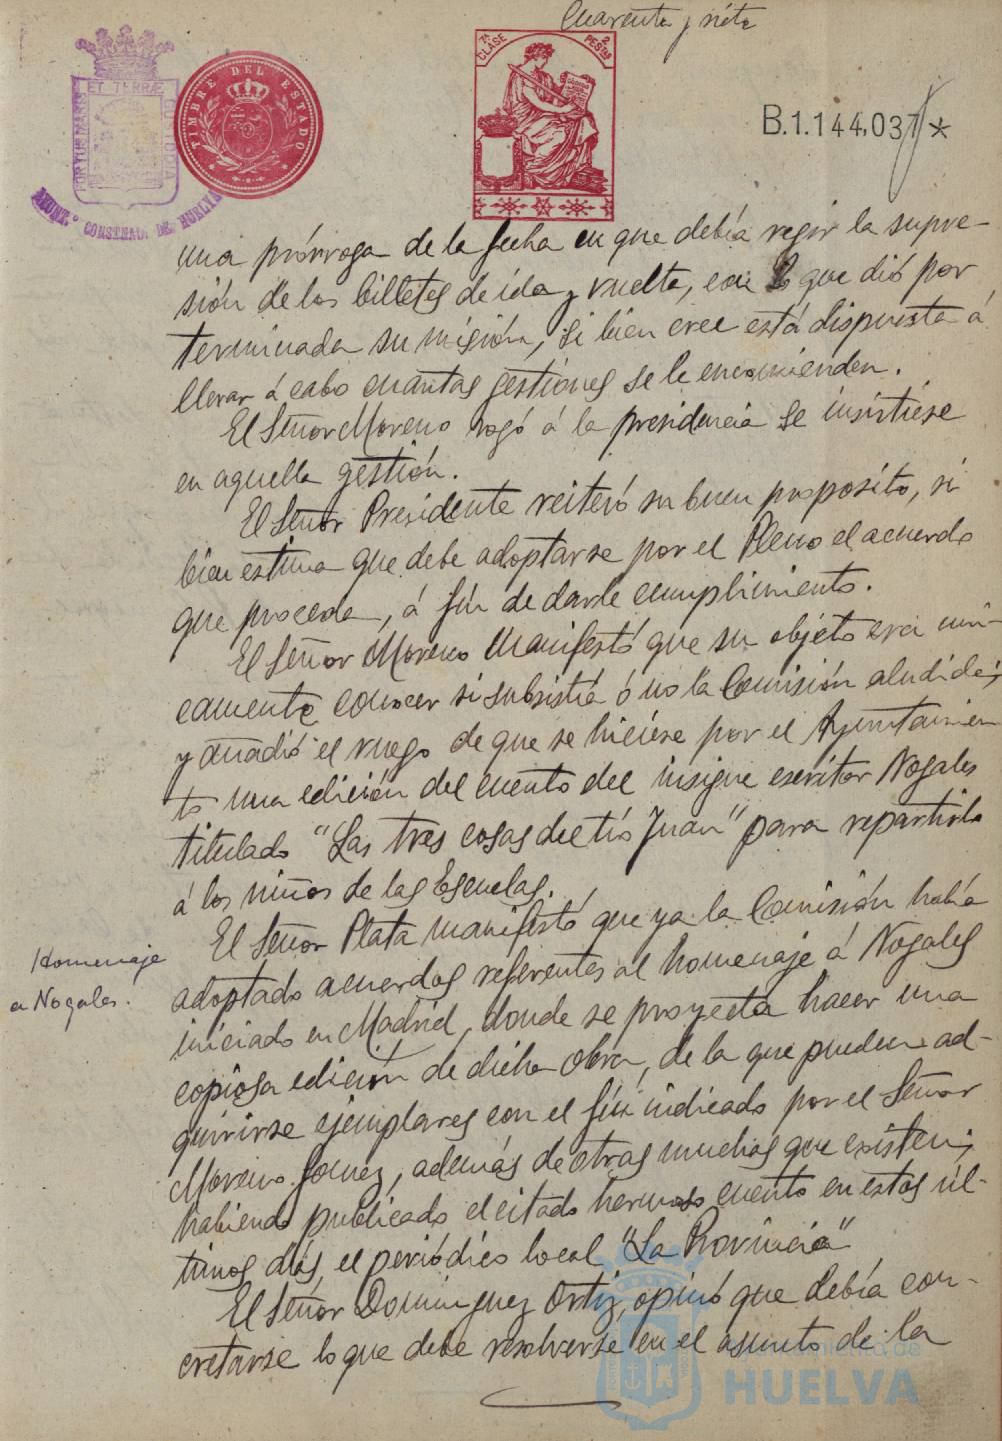 Cuarenta y siete
7ª CLASE 2 PESTAS
PORTUS MARIS ET TERRÆ CUSTODIA
AYUNT.º CONSTNAL. DE HUELVA
TIMBRE DEL ESTADO
B.1.144,037 *
una prórroga de la fecha en que debía regir la supre-
sión de los billetes de ida y vuelta, con lo que dió por
terminada su misión, si bien cree está dispuesta á
llevar á cabo cuantas gestiones se le encomienden.
El Señor Moreno rogó á la presidencia se insistiese
en aquella gestión.
El Señor Presidente reiteró su buen proposito, si
bien estima que debe adoptarse por el Pleno el acuerdo
que proceda, á fin de darle cumplimiento.
El Señor Moreno manifestó que su objeto era úni-
camente conocer si subsistía ó no la Comisión aludida;
y añadió el ruego de que se hiciese por el Ayuntamien
to una edición del cuento del insigne escritor Nogales
titulado "Las tres cosas del tío Juan" para repartirlo
á los niños de las Escuelas.
Homenaje
a Nogales.
El Señor Plata manifestó que ya la Comisión había
adoptado acuerdos referentes al homenaje á Nogales
iniciado en Madrid, donde se proyecta hacer una
copiosa edición de dicha obra, de la que pueden ad-
quirirse ejemplares con el fin indicado por el Señor
Moreno Gomez, además de otras muchas que existen;
habiendo publicado el citado hermoso cuento en estos úl-
timos días, el periódico local "La Provincia"
El Señor Dominguez Ortiz, opinó que debía con-
cretarse lo que debe resolverse en el asunto de la
Ayuntamiento de
HUELVA